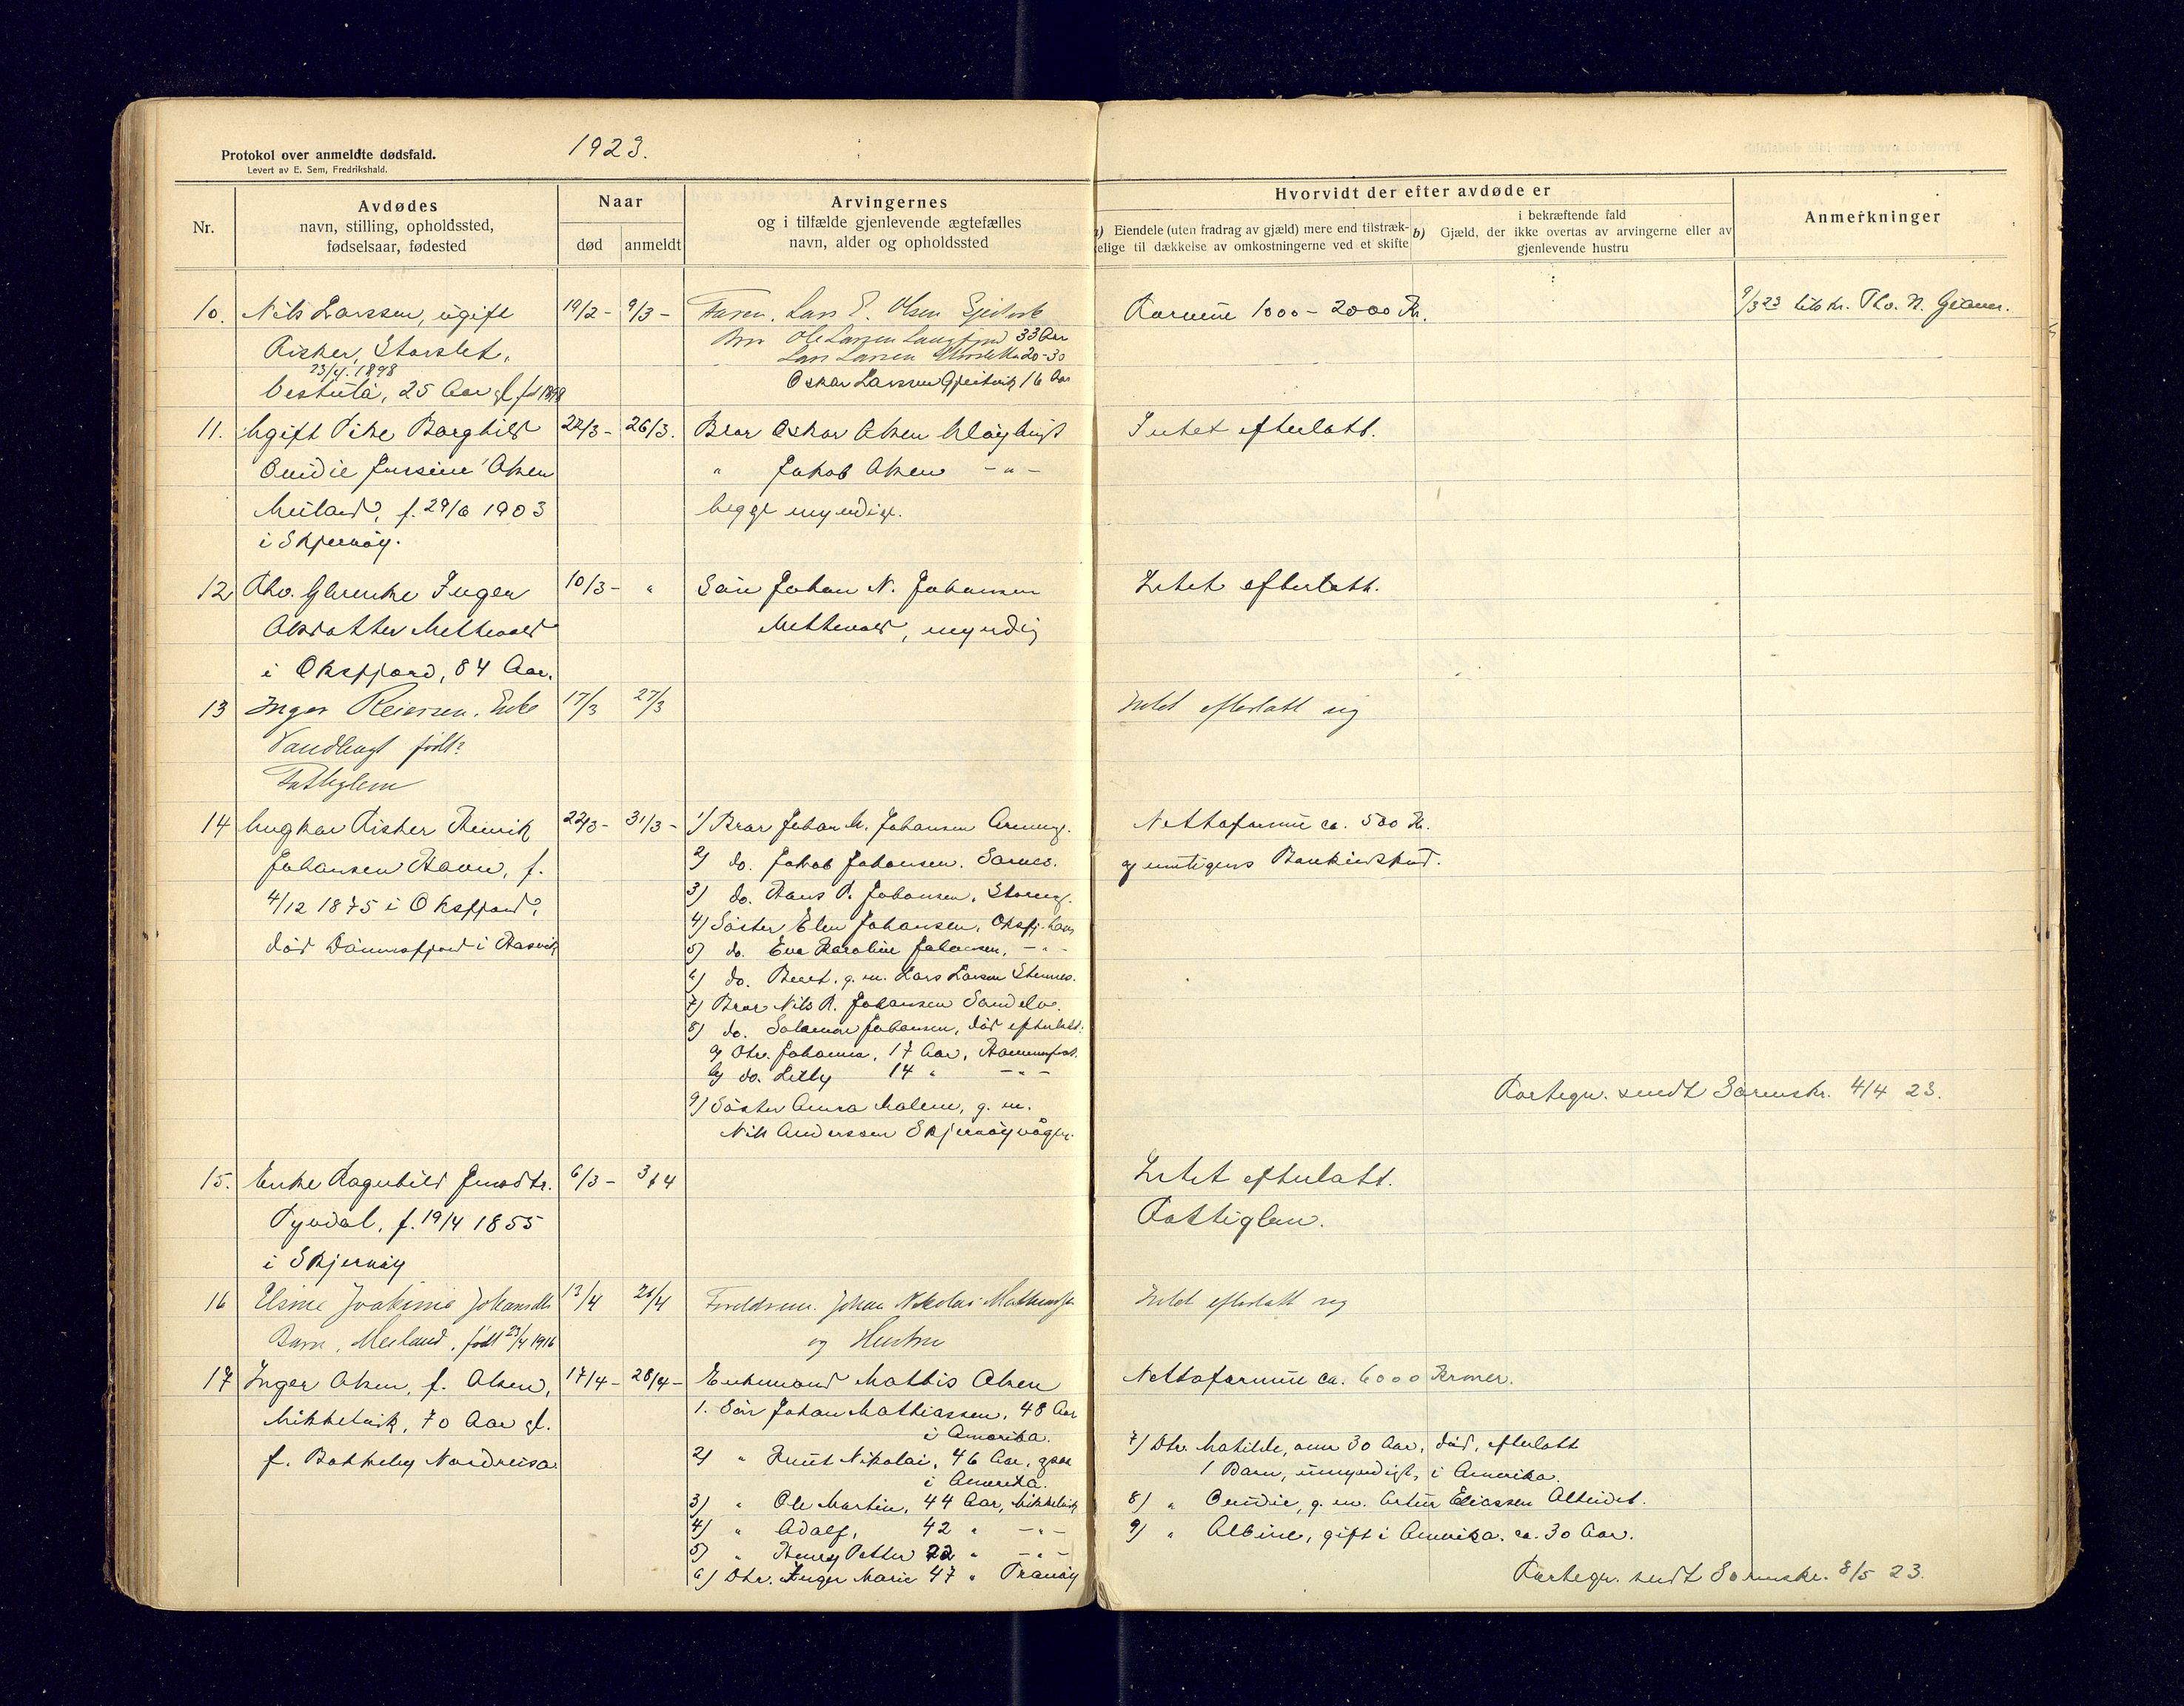 Protokol over anmeldte dødsfald.
Levert av E. Sem, Fredrikshald.
1923.
Nr.
Avdødes
navn, stilling, opholdssted,
fødselsaar, fødested
Naar
død
anmeldt
Arvingernes
og i tilfælde gjenlevende ægtefælles
navn, alder og opholdssted
Hvorvidt der efter avdøde er
a) Eiendele (uten fradrag av gjæld) mere end tilstræk-
kelige til dækkelse av omkostningerne ved et skifte
b)
i bekræftende fald
Gjæld, der ikke overtas av arvingerne eller av
gjenlevende hustru
Anmerkninger
10. Nils Larssen, ugift
Fisker, Storslet,
23/4. 1898
25 Aar gl. fd 1898
19/2 - 9/3 -
Faren, Lars E. Olsen
Bror Ole Larsen Langfjord 33 Aar
Lars Larsen 20-30
Oskar Larssen Gjeitvik 16 Aar
Formue 1000 - 2000 Kr.
9/3 23 Th. N. Giæver.
11. Ugift Pike Borghild
Emidie Jensine Olsen
Meiland, f. 29/6 1903
i Skjervøy.
22/3 - 26/3.
Bror Oskar Olsen
" Jakob Olsen - " -
begge myndige.
Intet efterlatt.
12 Fhv. Gjerenke Inger
Olsdatter Mettevold
i Oksfjord, 84 Aar.
10/3 - "
Søn Johan N. Johansen
Mettevold, myndig
Intet efterlatt.
13 Inger Reiersen, Enke
Vandbugt født?
Fattiglem
17/3 27/3
Intet efterlatt sig
14 Ungkar Fisker Henrik
Johansen Havn, f.
4/12 1875 i Oksfjord,
død Dønnesfjord i Hasvik
22/3 - 31/3 -
1) Bror Johan M. Johansen
2) do. Jakob Johansen.
3) do. Hans P. Johansen,
4) Søster Elen Johansen, Oksfj. havn
5) do. Eva Karoline Johansen, - " -
6) do. Berit, g. m. Lars Larsen
7) Bror Nils R. Johansen Sandelv.
8) do. Salamon Johansen, død efterlatt:
a) Dtr. Johanna, 17 Aar, Hammerfest.
b) do. Lilly 14 " - " -
9) Søster Anna Malene, g. m.
Nils Anderssen Skjervøyvågen.
Nettoformue ca. 500 Kr.
og muligens Bankindskud.
Fortegn. sendt Sorenskr. 4/4 23.
15. Enke Ragnhild
f. 19/4 1855
i Skjervøy
6/3 - 3/4
Intet efterlatt.
Fattiglem.
16 Elsine Joakima Johansdtr
Barn, Meiland, født 23/4 1916
13/4
Foreldrene. Johan Nikolai
og Hustru
Intet efterlatt sig
17 Inger Olsen, f. Olsen,
Mikkelvik, 70 Aar gl.
f. Bakkeby Nordreisa
17/4 - 28/4 -
Enkemand Mathis Olsen
1. Søn Johan Mathiassen, 48 Aar
i Amerika.
2) " Knut Nikolai, 46 Aar,
i Amerika.
3) " Ole Martin, 44 Aar, Mikkelvik
4) " Adolf, 42 " - " -
5) " Henry Petter 22 " - " -
6) Dtr. Inger Marie 47 " Tranøy
Nettoformue ca. 6000 Kroner.
7) Dtr. Matilde, over 30 Aar, død, efterlatt
1 Barn, umyndigt, i Amerika.
8) " Emidie, g. m. Artur Eliassen Alteidet.
9) " Albine, gift i Amerika. ca. 30 Aar.
Fortegn. sendt Sorenskr. 8/5 23.